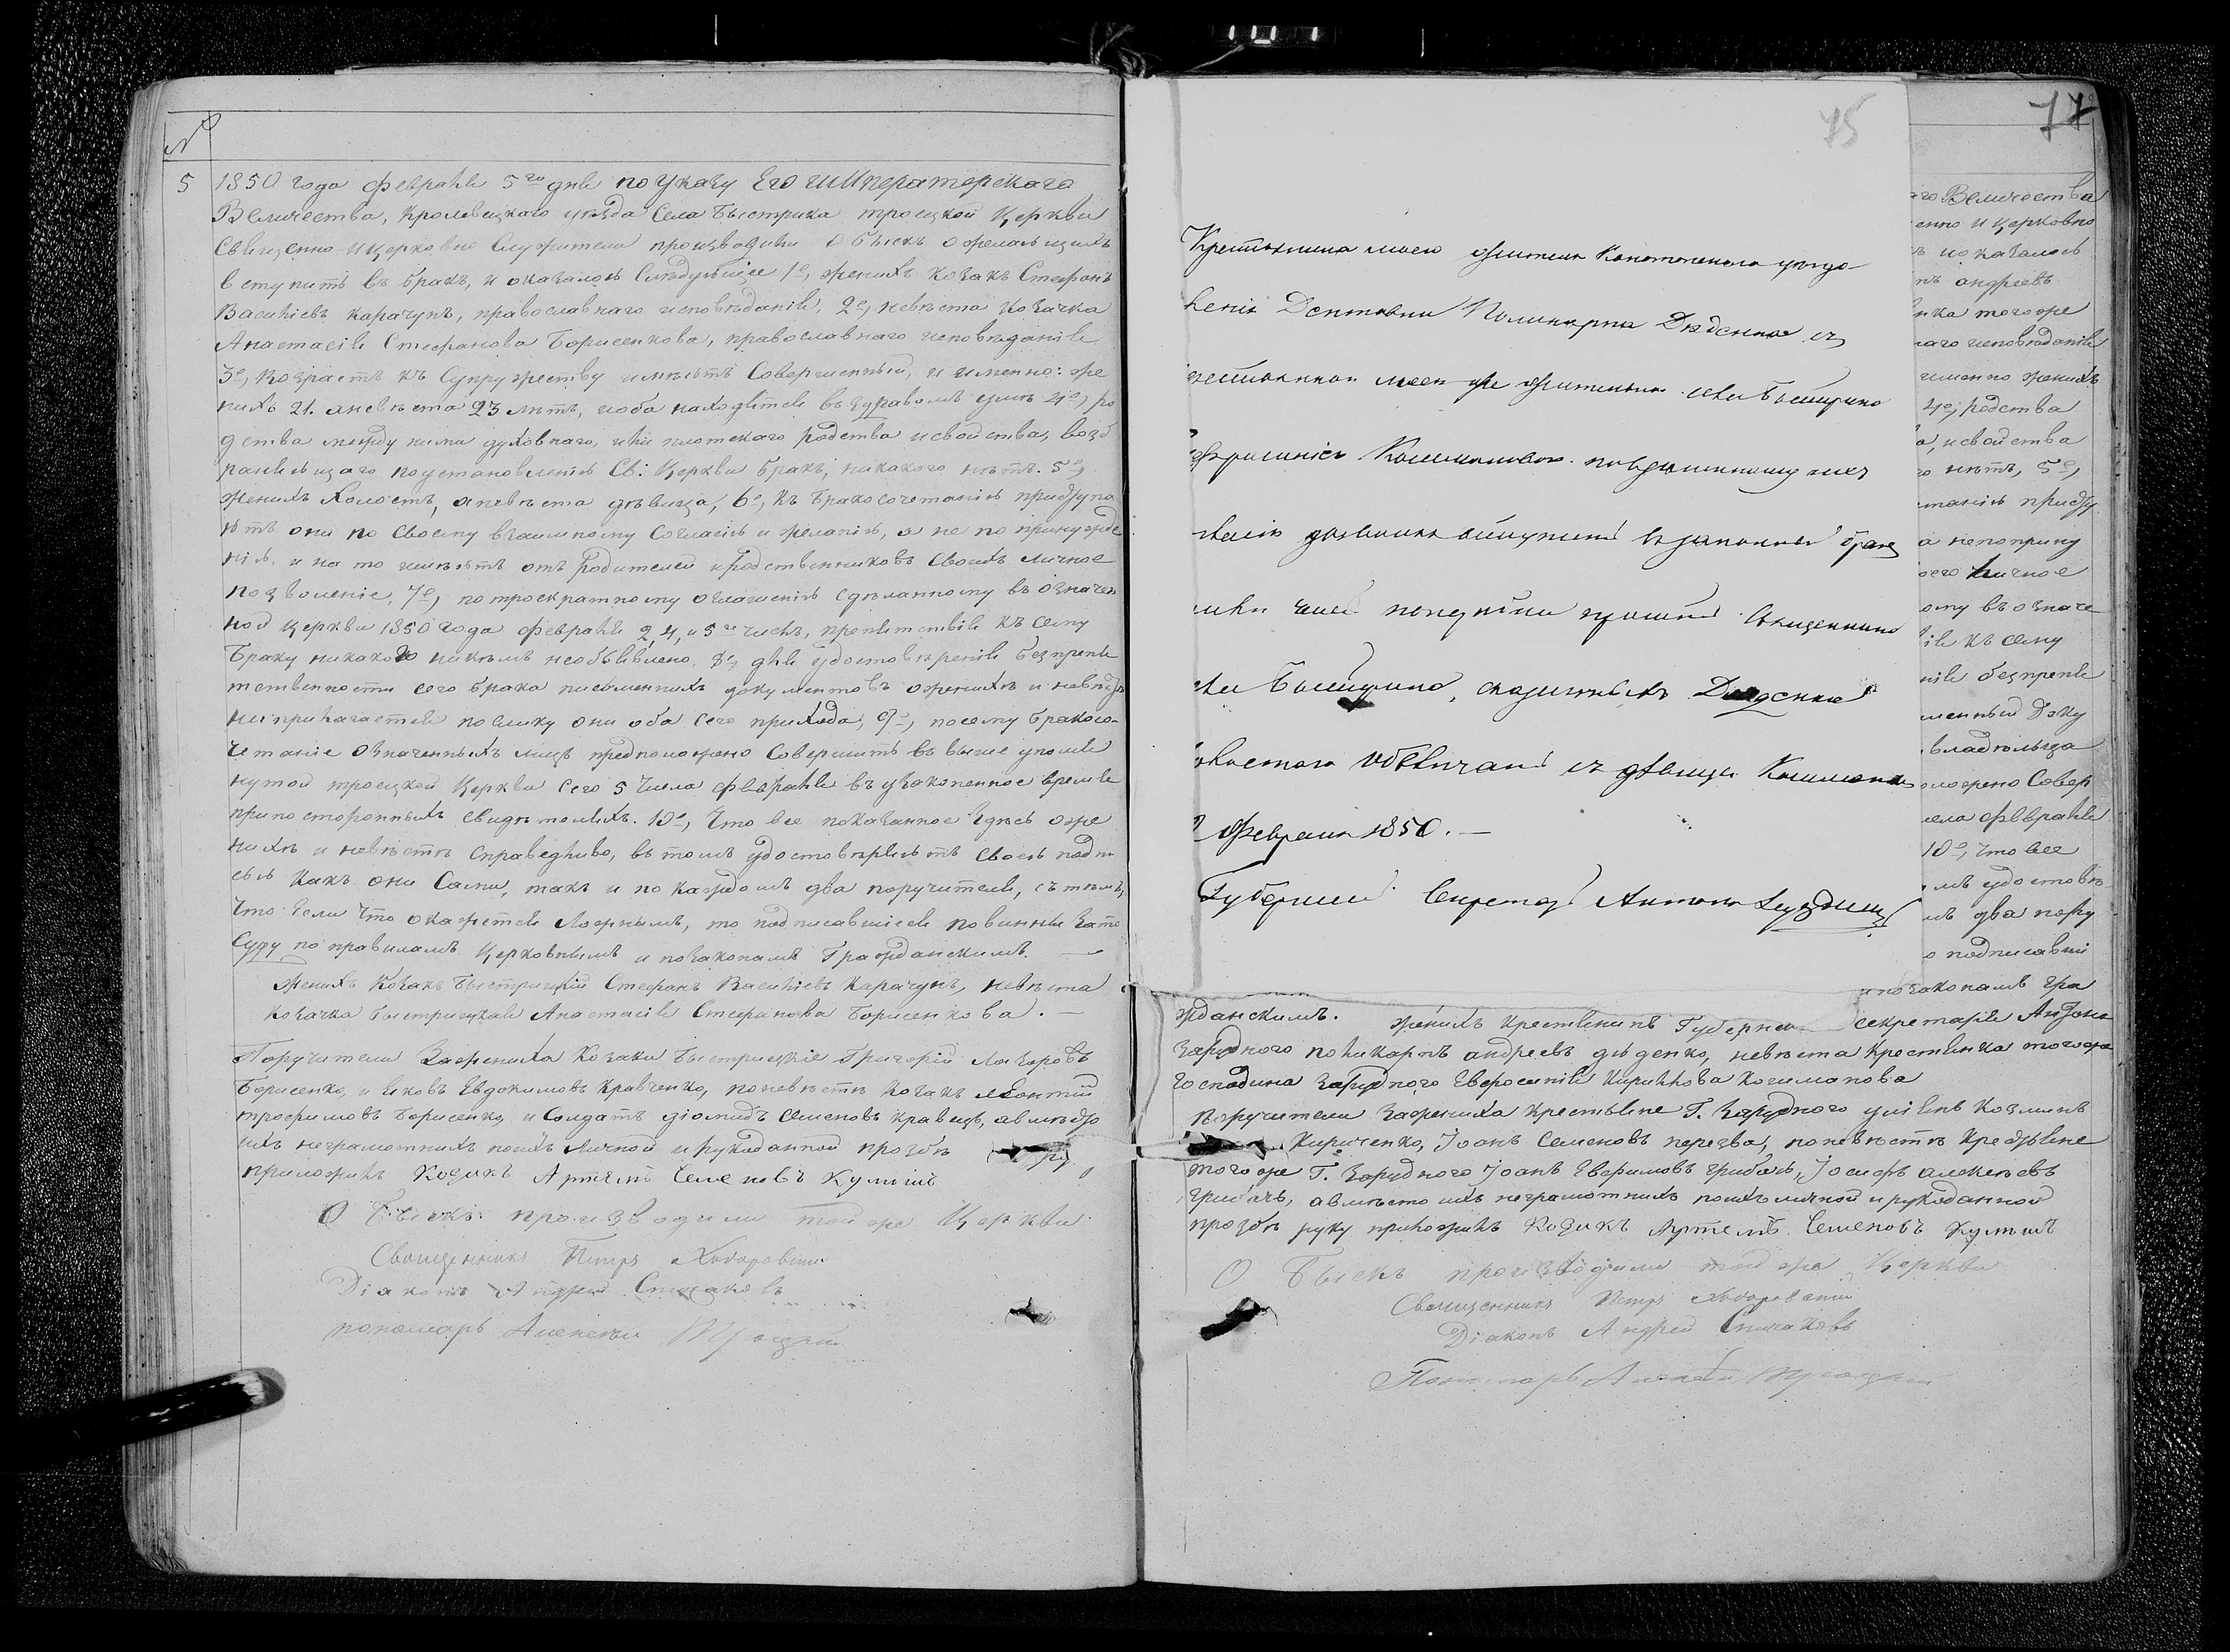 №
5
1850 года февраля 5го дня по указу Его Императорскаго
Величества, Кролевецкаго уезда Села Быстрика троецкой Церкви
Священно и церковно Служители производили обыскъ о желающихъ
вступить въ бракъ, и оказалось Следующее 1е, женихъ козакъ Стефанъ
Василіевъ Карачунъ, православнаго исповѣданія, 2е, невѣста козачка
Анастасія Стефанова Борисенкова, православнаго исповѣданія
3е, возрастъ къ Супружеству имѣютъ Совершенный, и именно: же
нихъ 21. а невѣста 23 лѣтъ, и оба находятся въ здравомъ умѣ 4е, ро
дства между ними духовнаго, или плотскаго родства и свойства, возб
раняющаго по установленію Св: Церкви бракъ, никакого нѣтъ. 5е,
женихъ Холостъ, а невѣста дѣвица, 6е, къ бракосочетанію приступа
ютъ они по своему взаимному Согласію и желанію, а не по принужде
нію, и на то имѣютъ отъ Родителей и родственниковъ своихъ личное
позволеніе, 7е, по троекратному оглашенію сдѣланному въ означен
ной церкви 1850 года февраля 2 4, и 5го числъ, препятствія къ сему
браку никакого никѣмъ необъявлено, 8е, для удостовѣренія безпрепя
тственности сего брака письменныхъ документовъ о женихѣ и невѣстѣ
неприлагается поелику они оба сего прихода, 9е, посему бракосо-
четаніе означенныхъ лицъ предположено Совершить въ выше упомя
нутой троецкой Церкви сего 5 числа февраля въ узаконенное время
при постороннихъ свидѣтеляхъ. 10е, Что все показанное здѣсь о же
нихѣ и невѣстѣ справедливо, въ томъ удостовѣряютъ своею подпи
сью какъ они Сами, такъ и по каждомъ два поручителя, съ тѣмъ,
что если что окажется Ложнымъ, то подписавшіеся повинны за то
Суду по правиламъ Церковнымъ и по законамъ Гражданскимъ. —
женихъ Козакъ Быстрицкій Стефанъ Василіевъ Карачунъ, невѣста
козачка быстрицкая Анастасія Стефанова Борисенкова. —
Поручители За жениха Козаки быстрицкіе Григорій Лазоровъ
Борисенко, и Яковъ Евдокимовъ Кравченко, по невѣстѣ Козакъ леонтій
трофимовъ Борисенко, и Солдатъ діомидъ Семеновъ Кравецъ, а вмѣсто
ихъ неграмотнихъ по ихъ Личной и рукоданной прозбѣ руку
приложилъ Козакъ Артемъ Семеновъ Кулишъ
Обыскъ производили той же Церкви
Священникъ Петръ Ходоровскій
Діаконъ Андрей Спичаковъ
пономарь Алексѣй Троцкій
75
Крестьянина моего жителя Конотопскаго уезда
Поликарпа Дѣденка съ
моею же жительною села Быстрика
дозволяю вступить въ законный бракъ
Священника
села Быстрика, Дѣденка
обвѣнчать съ дѣвицею
Февраля 1850. —
Губернскій Секретарь Антонъ Зарудный
77
го Величества
енно и церковно
ъ и оказалось
пъ андреевъ
нка того же
наго исповѣданія
именно женихъ
4е, родства
а, и свойства
го нѣтъ, 5е,
танію присту
а не по прину
оего личное
ому въ означе
ія къ сему
нія безпрепя
менный Доку
владѣльца
оложено Совер
сла февраля
10е, что все
мъ удостовѣ
мъ два пору
о подписавші
и по законамъ Гра
жданскимъ. женихъ крестьянинъ Губернск секретаря Антона
Заруднаго поликарпъ андреевъ дѣденко, невѣста крестьянка того же
Господина Заруднаго Евфросинія Кирилова Кошманова
поручители За жениха крестьяне Г. Заруднаго уліянъ Козминъ
Кириченко, Іоанъ Семеновъ перезва, по невѣстѣ крестьяне
того же Г. Заруднаго Іоанъ Ефримовъ грибачъ, Іосифъ алексѣевъ
грибачъ, а вмѣсто ихъ неграмотнихъ по ихъ личной и рукоданной
прозбѣ руку приложилъ Козакъ Артемъ Семеновъ Кулишъ
Обыскъ производили той же Церкви
Священникъ Петръ Ходоровскій
Діаконъ Андрей Спичаковъ
Пономарь Алексѣй Троцкій